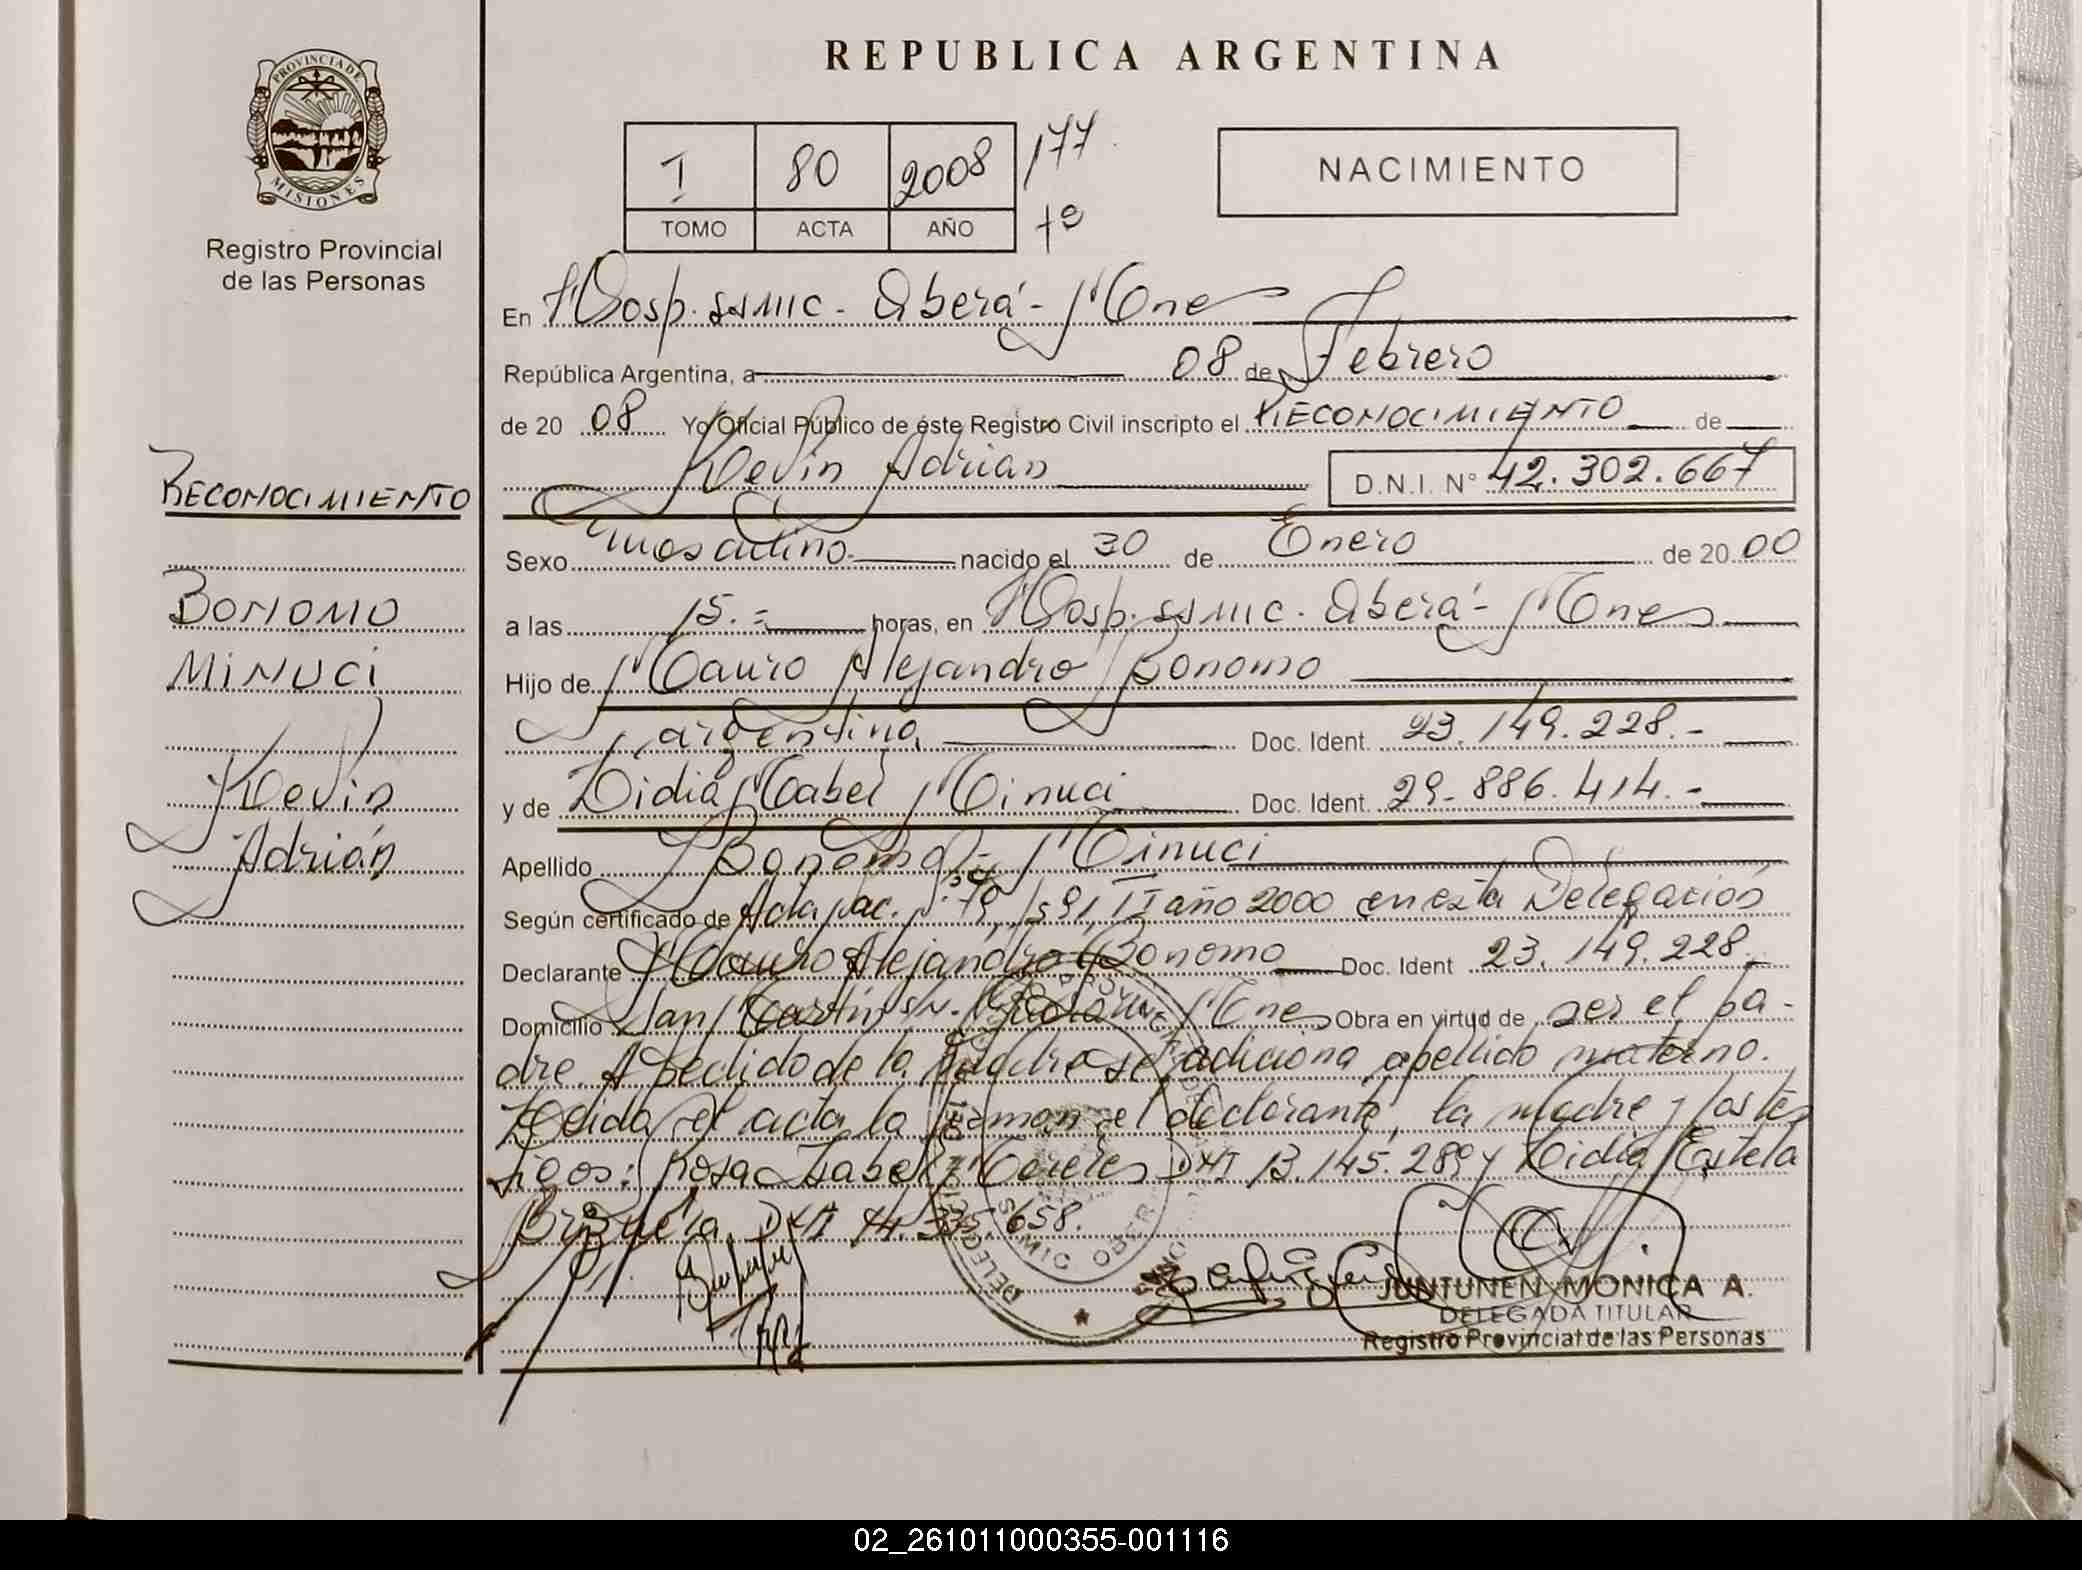 REPUBLICA ARGENTINA
PROVINCIA DE
MISIONES
Registro Provincial
de las Personas
I 80 2008 177
TOMO ACTA AÑO fº
NACIMIENTO
En Hosp. SSMIC - Oberá - Mnes
República Argentina, a 08 de Febrero
de 20 08 Yo Oficial Público de éste Registro Civil inscripto el RECONOCIMIENTO de
Kevin Adrián D.N.I. Nº 42.302.667
RECONOCIMIENTO
BONOMO
MINUCI
Kevin
Adrián
Sexo masculino nacido el 30 de Enero de 20 00
a las 15.- horas, en Hosp. SSMIC - Oberá - Mnes
Hijo de Mauro Alejandro Bonomo
argentina Doc. Ident. 23.149.228.-
y de Lidia Mabel Minuci Doc. Ident. 29.886.414.-
Apellido Bonomo - Minuci
Según certificado de Acta nac. 591, II año 2000 en esta Delegación
Declarante Mauro Alejandro Bonomo Doc. Ident 23.149.228.-
Domicilio San Martín s/n. Mnes Obra en virtud de ser el pa-
dre. Apellido de la madre se adiciona apellido materno.
Leida el acta la firman el declarante, la madre y los tes
tigos: Rosa Isabel DNI 13.145.289 y Lidia Estela
Brizuela DNI 14.335.658.
DELEGACION
SSMIC OBERA
JUNTUNEN MONICA A.
DELEGADA TITULAR
Registro Provincial de las Personas
02_261011000355-001116